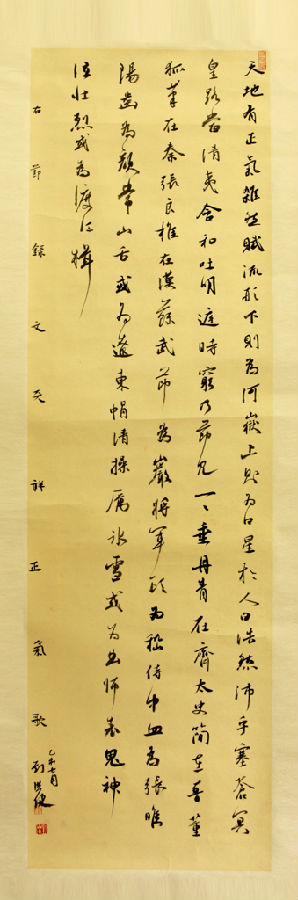 天地有正氣雜然賦流形下則為河嶽上則為日星於人曰浩然沛乎塞蒼冥
皇路當清夷含和吐明庭時窮乃節見一一垂丹青在齊太史簡在晉董
狐筆在秦張良椎在漢蘇武節為嚴將軍頭為嵇侍中血為張睢
陽齒為顏常山舌或為遼東帽清操厲冰雪或為出師表鬼神
泣壯烈或為渡江楫
右節錄文天祥正氣歌